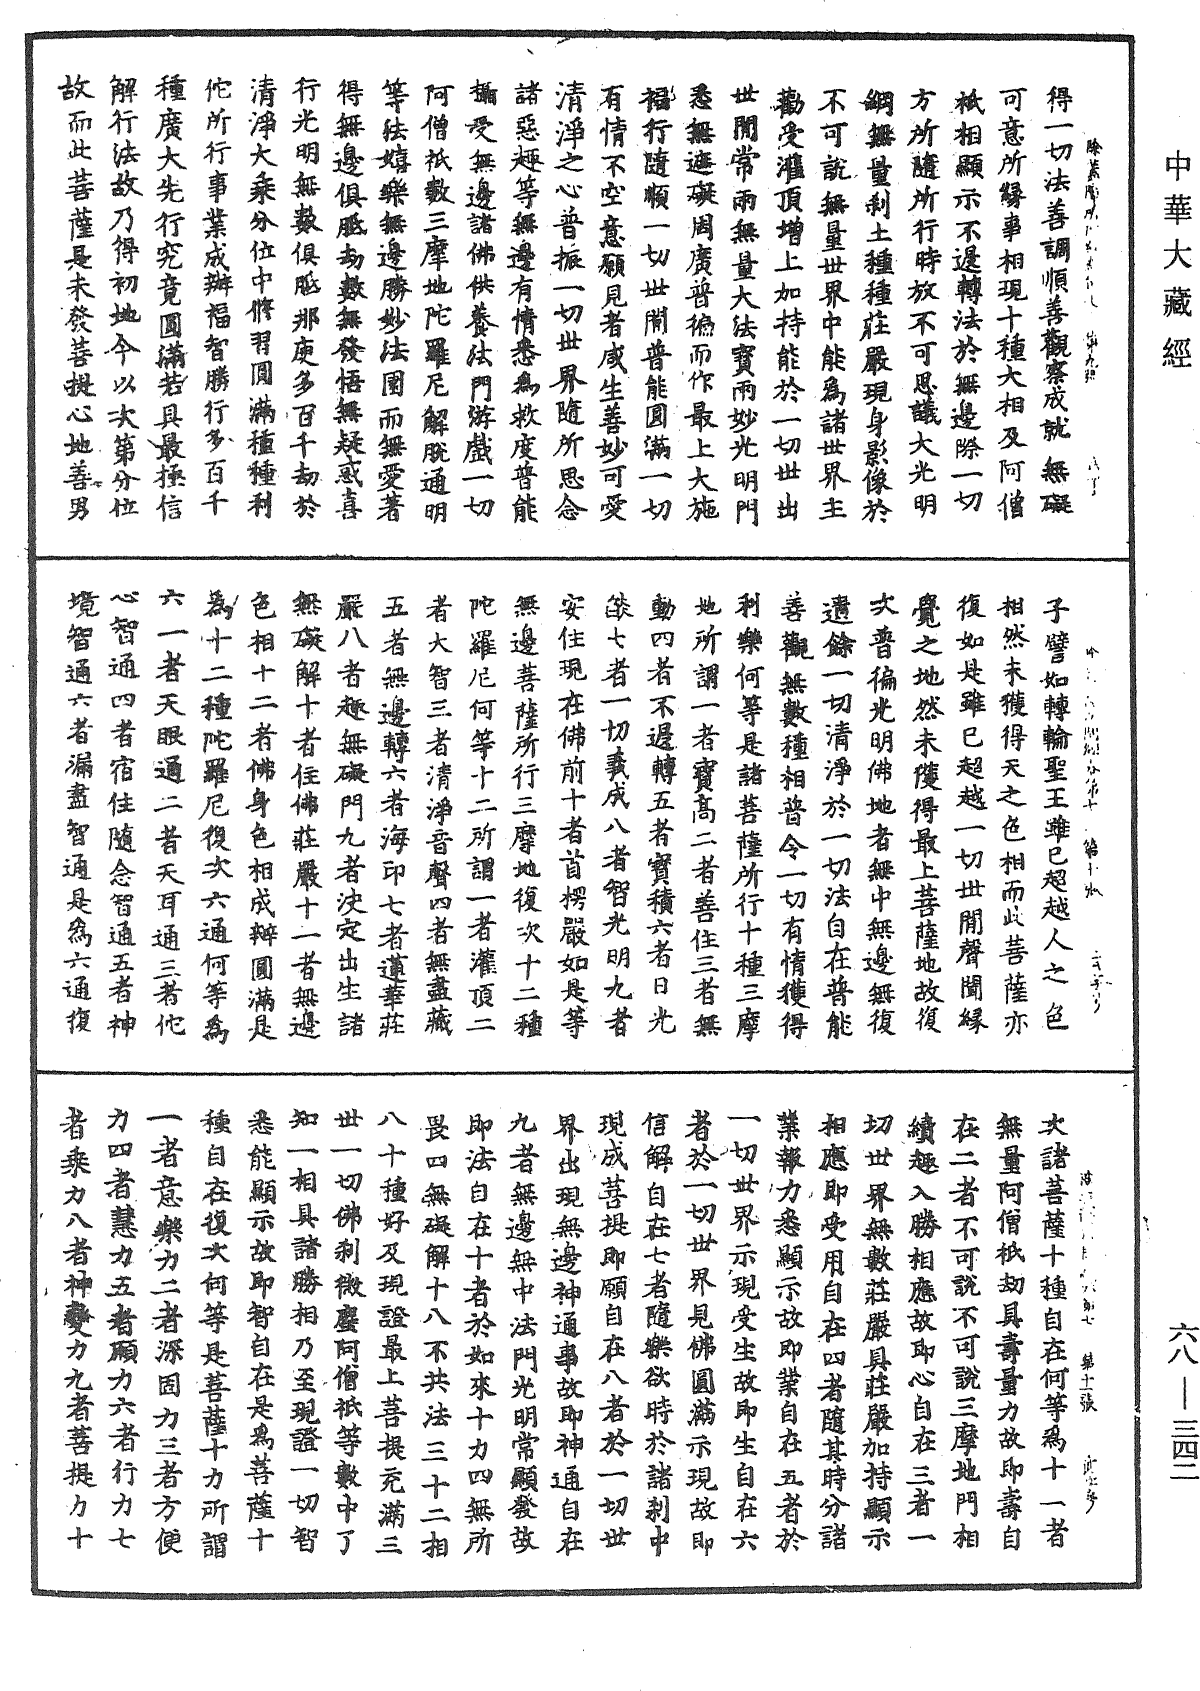 中華大藏經
得一切法善調順善觀察成就無礙
可意所緣事相現十種大相及阿僧
祇相顯示不退轉法於無邊際一切
方所隨所行時放不可思議大光明
網無量剎土種種莊嚴現身影像於
不可說無量世界中能為諸世界主
勸受灌頂增上加持能於一切世出
世間常雨無量大法寶雨妙光明門
悉無遮礙周廣普徧而作最上大施
福行隨順一切世間普能圓滿一切
有情不空意願見者咸生善妙可愛
清淨之心普振一切世界隨所思念
諸惡趣等無邊有情悉為救度普能
攝受無邊諸佛供養法門游戲一切
阿僧祇數三摩地陀羅尼解脫通明
等法嬉樂無邊勝妙法園而無愛著
得無邊俱胝劫數無發悟無疑惑喜
行光明無數俱胝那庾多百千劫於
清淨大乘分位中修習圓滿種種利
佗所行事業成辦福智勝行多百千
種廣大先行究竟圓滿若具最極信
解行法故乃得初地今以次第分位
故而此菩薩是未發菩提心地善男
子譬如轉輪聖王雖已超越人之色
相然未獲得天之色相而此菩薩亦
復如是雖已超越一切世間聲聞緣
覺之地然未獲得最上菩薩地故復
次普徧光明佛地者無中無邊無復
遺餘一切清淨於一切法自在普能
善觀無數種相普令一切有情獲得
利樂何等是諸菩薩所行十種三摩
地所謂一者寶高二者善住三者無
動四者不退轉五者寶積六者日光
燄七者一切義成八者智光明九者
安住現在佛前十者首楞嚴如是等
無邊菩薩所行三摩地復次十二種
陀羅尼何等十二所謂一者灌頂二
者大智三者清淨音聲四者無盡藏
五者無邊轉六者海印七者蓮華莊
嚴八者趣無礙門九者決定出生諸
無礙解十者住佛莊嚴十一者無邊
色相十二者佛身色相成辦圓滿是
為十二種陀羅尼復次六通何等為
六一者天眼通二者天耳通三者佗
心智通四者宿住隨念智通五者神
境智通六者漏盡智通是為六通復
次諸菩薩十種自在何等為十一者
無量阿僧祇劫具壽量力故即壽自
在二者不可說不可說三摩地門相
續趣入勝相應故即心自在三者一
切世界無數莊嚴具莊嚴加持顯示
相應即受用自在四者隨其時分諸
業報力悉顯示故即業自在五者於
一切世界示現受生故即生自在六
者於一切世界見佛圓滿示現故即
信解自在七者隨樂欲時於諸剎中
現成菩提即願自在八者於一切世
界出現無邊神通事故即神通自在
九者無邊無中法門光明常顯發故
即法自在十者於如來十力四無所
畏四無礙解十八不共法三十二相
八十種好及現證最上菩提充滿三
世一切佛剎微塵阿僧祇等數中了
知一相具諸勝相乃至現證一切智
悉能顯示故即智自在是為菩薩十
種自在復次何等是菩薩十力所謂
一者意樂力二者深固力三者方便
力四者慧力五者願力六者行力七
者乘力八者神變力九者菩提力十
六八—三四二